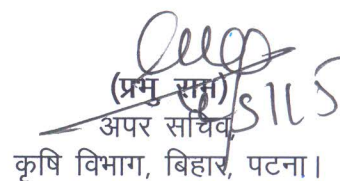 (प्रभु राम)
अपर सचिव,
कृषि विभाग, बिहार, पटना।